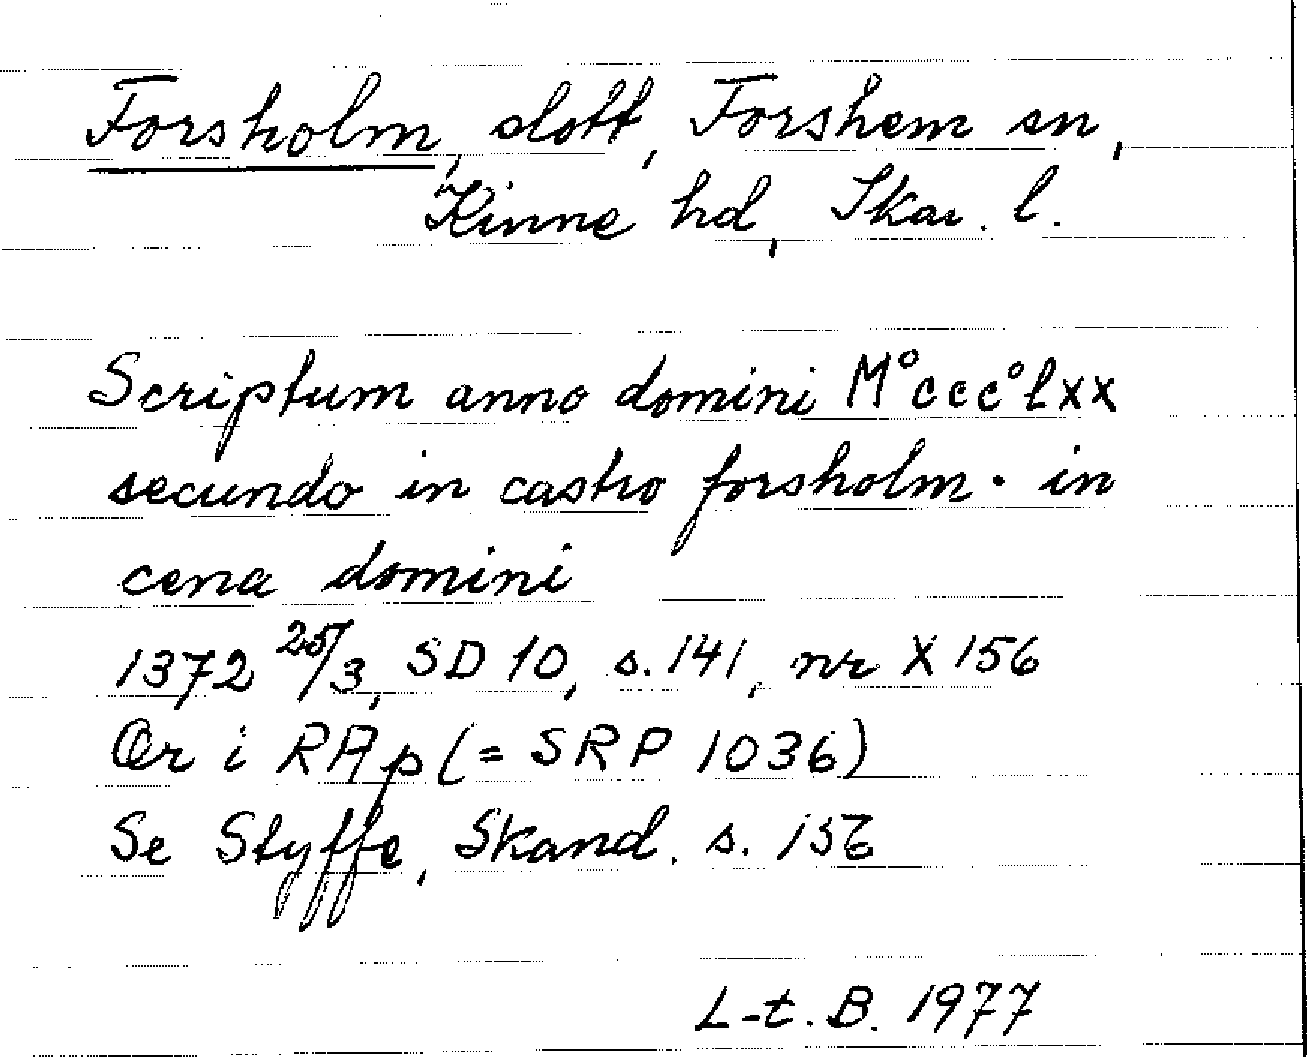 Forsholm, slott, Forshem sn,
Kinne hd, Skar. l.
Scriptum anno domini M°ccc°lxx
secundo in castro forsholm · in
cena domini
1372 25/3, SD 10, s. 141, nr X 156
Or i RAp (= SRP 1036)
Se Styffe, Skand. s. 156
L-t. B. 1977